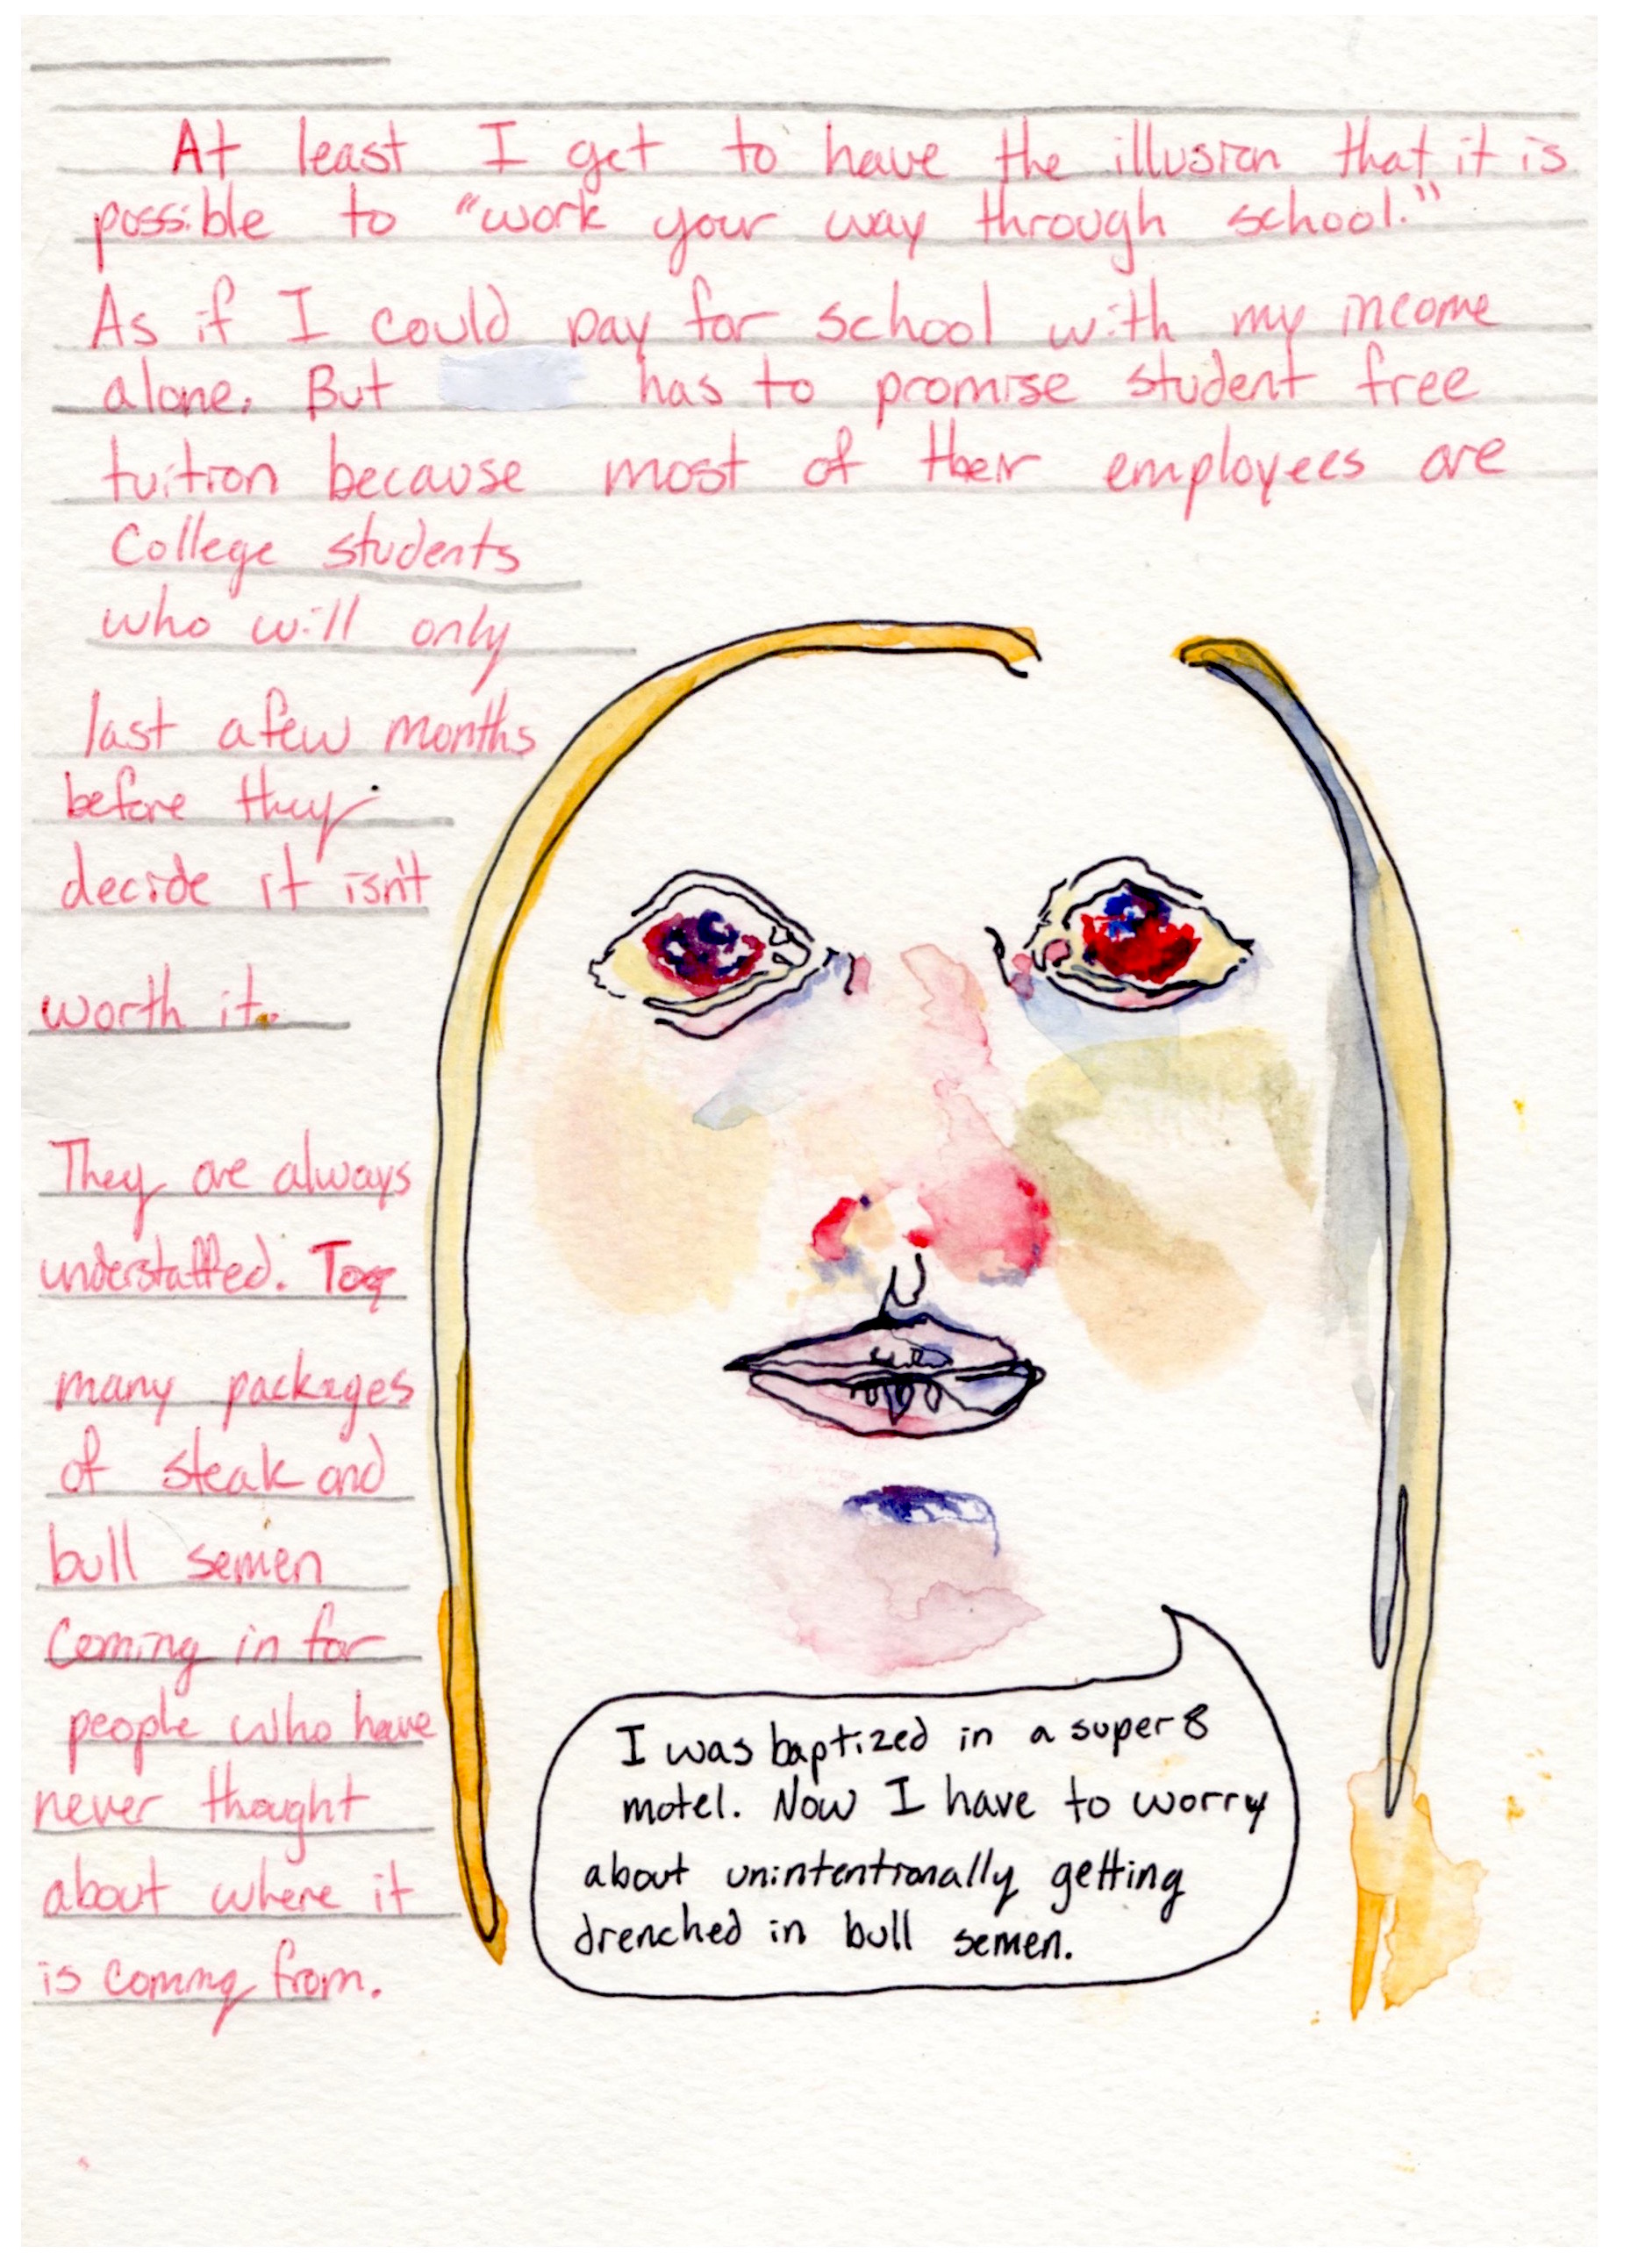 At least I get to have the illusion that it is
possible to "work your way through school."
As if I could pay for school with my income
alone. But has to promise student free
tuition because most of their employees are
College students
who will only
last a few months
before they
decide it isn't
worth it.
They are always
understaffed. Too
many packages
of steak and
bull semen
Coming in for
people who have
never thought
about where it
is coming from.
I was baptized in a super 8
motel. Now I have to worry
about unintentionally getting
drenched in bull semen.